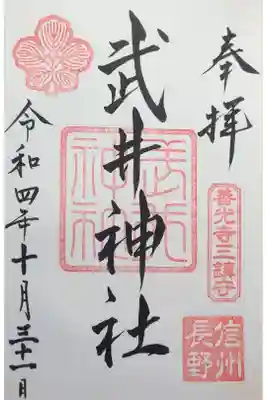 奉拝
善光寺三鎮守
信州
長野
武井神社
武井
神社
令和四年十月三十一日